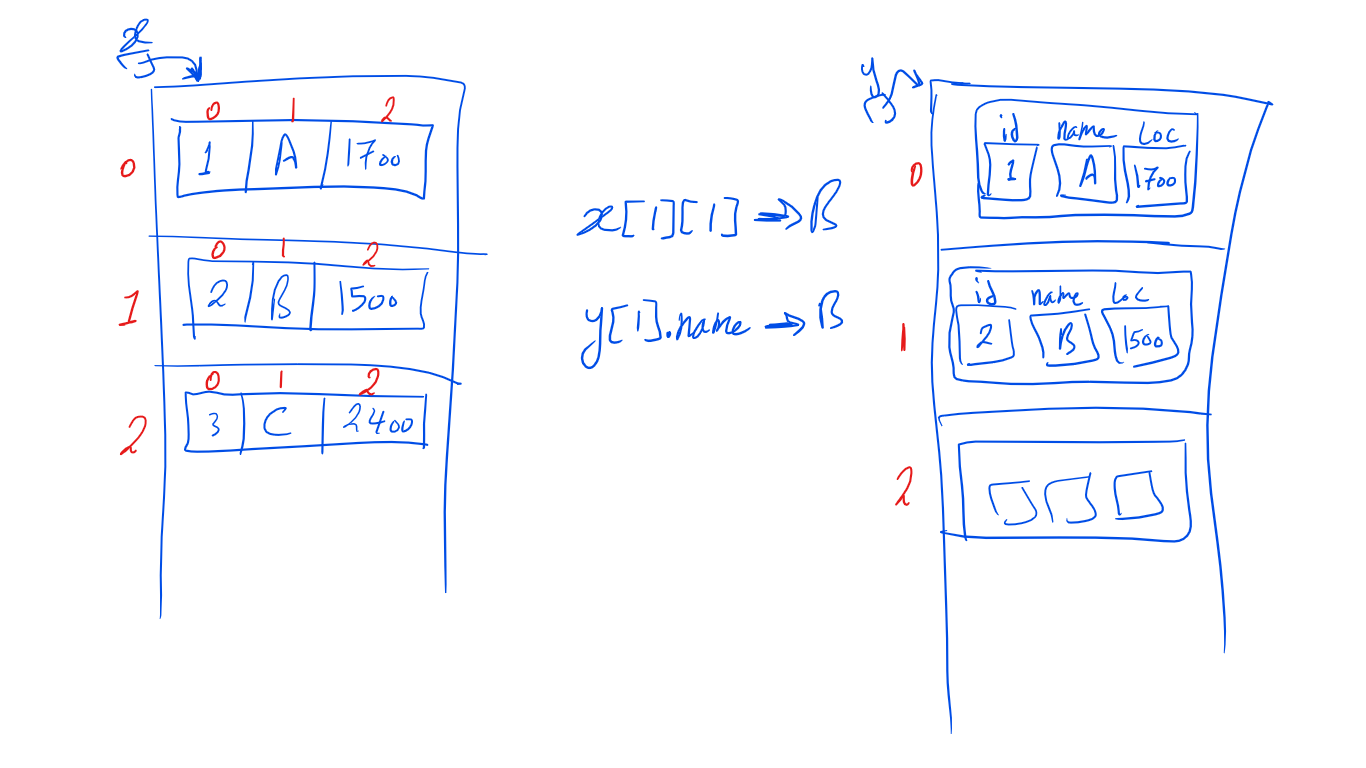 x
0 1 2
0 1 A 1700
0 1 2
1 2 B 1500
0 1 2
2 3 C 2400
x[1][1] → B
y[1].name → B
y
id name Loc
0 1 A 1700
id name Loc
1 2 B 1500
2